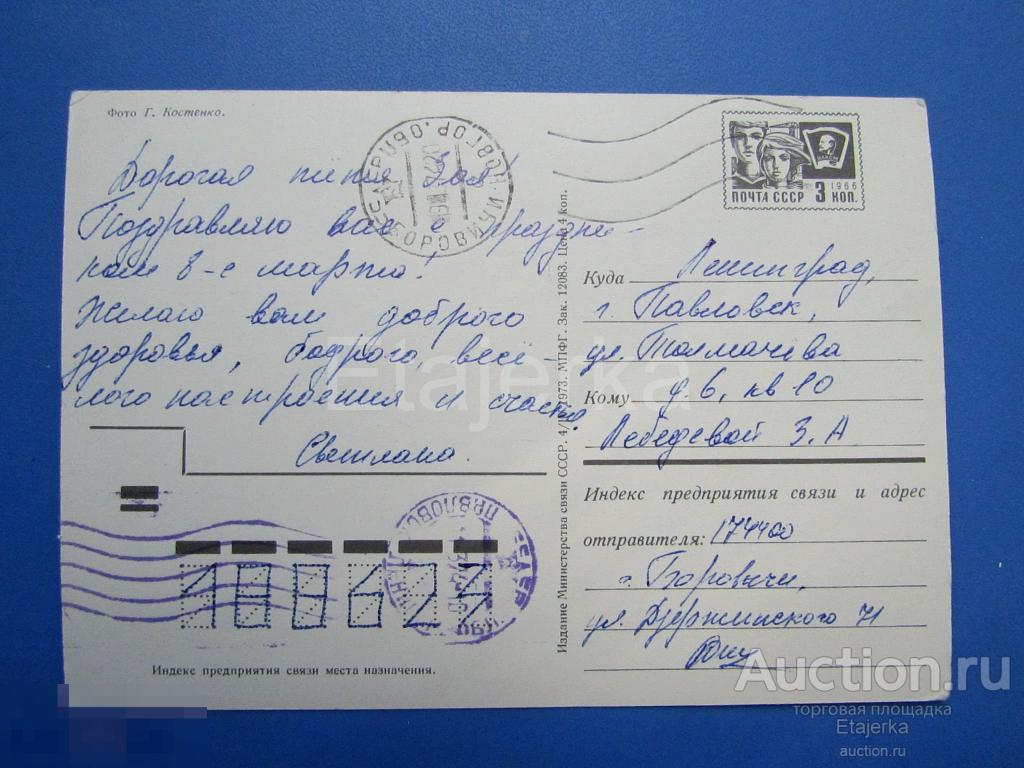 Фото Г. Костенко.
Дорогая тётя Зоя
Поздравляю вас с праздни-
ком 8-е марта!
Желаю вам доброго
здоровья, бодрого, весё-
лого настроения и счастья.
Светлана.
Индекс предприятия связи места назначения.
Издание Министерства связи СССР. 1973. МПФГ. Зак. 12083. Цена 4 коп.
ПОЧТА СССР 3 КОП.
1966
Куда Ленинград,
г. Павловск,
ул. Толмачёва
Кому д. 6, кв 10
Лебедевой З. А
Индекс предприятия связи и адрес
отправителя: 174400
г. Боровичи,
ул. Дзержинского 71
188623
БОРОВИЧИ НОВГОР. ОБЛ
ПАВЛОВСК
Etajerka
Auction.ru
торговая площадка
Etajerka
auction.ru